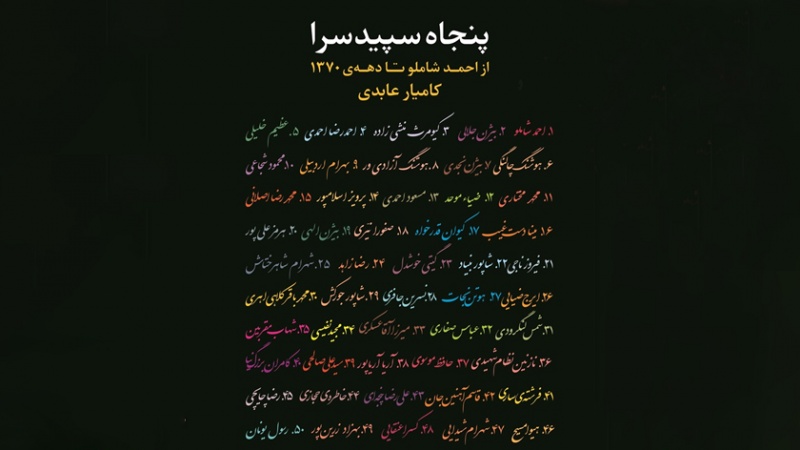 پنجاه سپیدسرا
از احمد شاملو تا دهه‌ی ۱۳۷۰
کامیار عابدی
۱. احمد شاملو ۲. بیژن جلالی ۳. کیومرث منشی‌زاده ۴. احمدرضا احمدی ۵. عظیم خلیلی
۶. هوشنگ چالنگی ۷. بیژن نجدی ۸. هوشنگ آزادی‌ور ۹. بهرام اردبیلی ۱۰. محمود شجاعی
۱۱. محمد مختاری ۱۲. ضیاء موحد ۱۳. مسعود احمدی ۱۴. پرویز اسلامپور ۱۵. محمدرضا اصلانی
۱۶. مینا دست‌غیب ۱۷. کیوان قدرخواه ۱۸. صفورا نیّری ۱۹. بیژن الهی ۲۰. هرمز علی‌پور
۲۱. فیروز ناجی ۲۲. شاپور بنیاد ۲۳. گیتی خوشدل ۲۴. رضا زاهد ۲۵. شهرام شاهرختاش
۲۶. ایرج ضیایی ۲۷. هوتن نجات ۲۸. نسرین جافری ۲۹. شاپور جورکش ۳۰. محمدباقر کلاهی اهری
۳۱. شمس لنگرودی ۳۲. عباس صفاری ۳۳. میرزا آقا عسکری ۳۴. مجید نفیسی ۳۵. شهاب مقربین
۳۶. نازنین نظام شهیدی ۳۷. حافظ موسوی ۳۸. آریا آریاپور ۳۹. سیدعلی صالحی ۴۰. کامران بزرگ‌نیا
۴۱. فرشته‌ی ساری ۴۲. قاسم آهنین‌جان ۴۳. علی‌رضا پنجه‌ای ۴۴. خاطره‌ی حجازی ۴۵. رضا چایچی
۴۶. هیوا مسیح ۴۷. شهرام شیدایی ۴۸. کسرا عنقایی ۴۹. بهزاد زرین‌پور ۵۰. رسول یونان